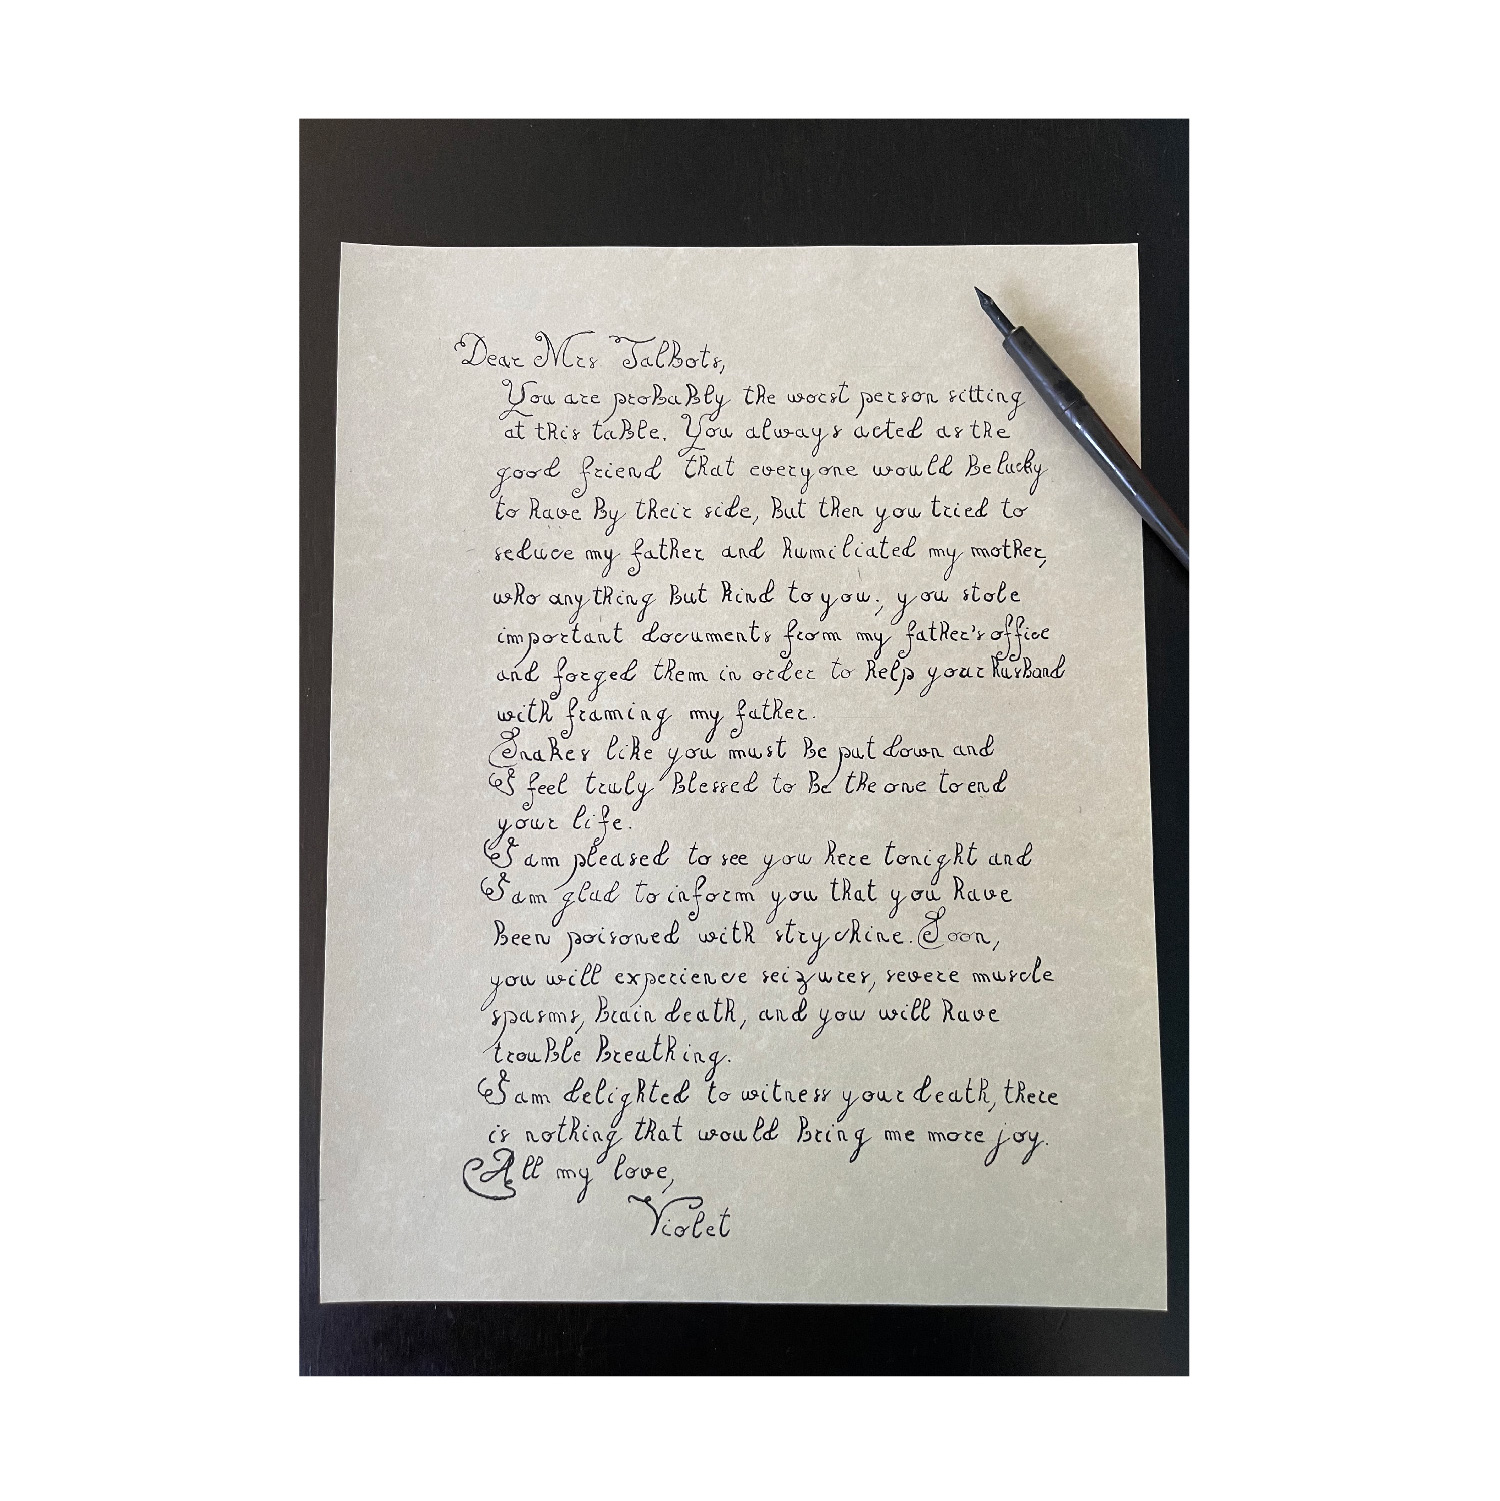 Dear Mrs Talbots,
You are probably the worst person sitting
at this table. You always acted as the
good friend that everyone would be lucky
to have by their side, but then you tried to
seduce my father and humiliated my mother,
who anything but kind to you; you stole
important documents from my father's office
and forged them in order to help your husband
with framing my father.
Snakes like you must be put down and
I feel truly blessed to be the one to end
your life.
I am pleased to see you here tonight and
I am glad to inform you that you have
been poisoned with strychine. Soon,
you will experience seizures, severe muscle
spasms, brain death, and you will have
trouble breathing.
I am delighted to witness your death, there
is nothing that would bring me more joy.
All my love,
Violet